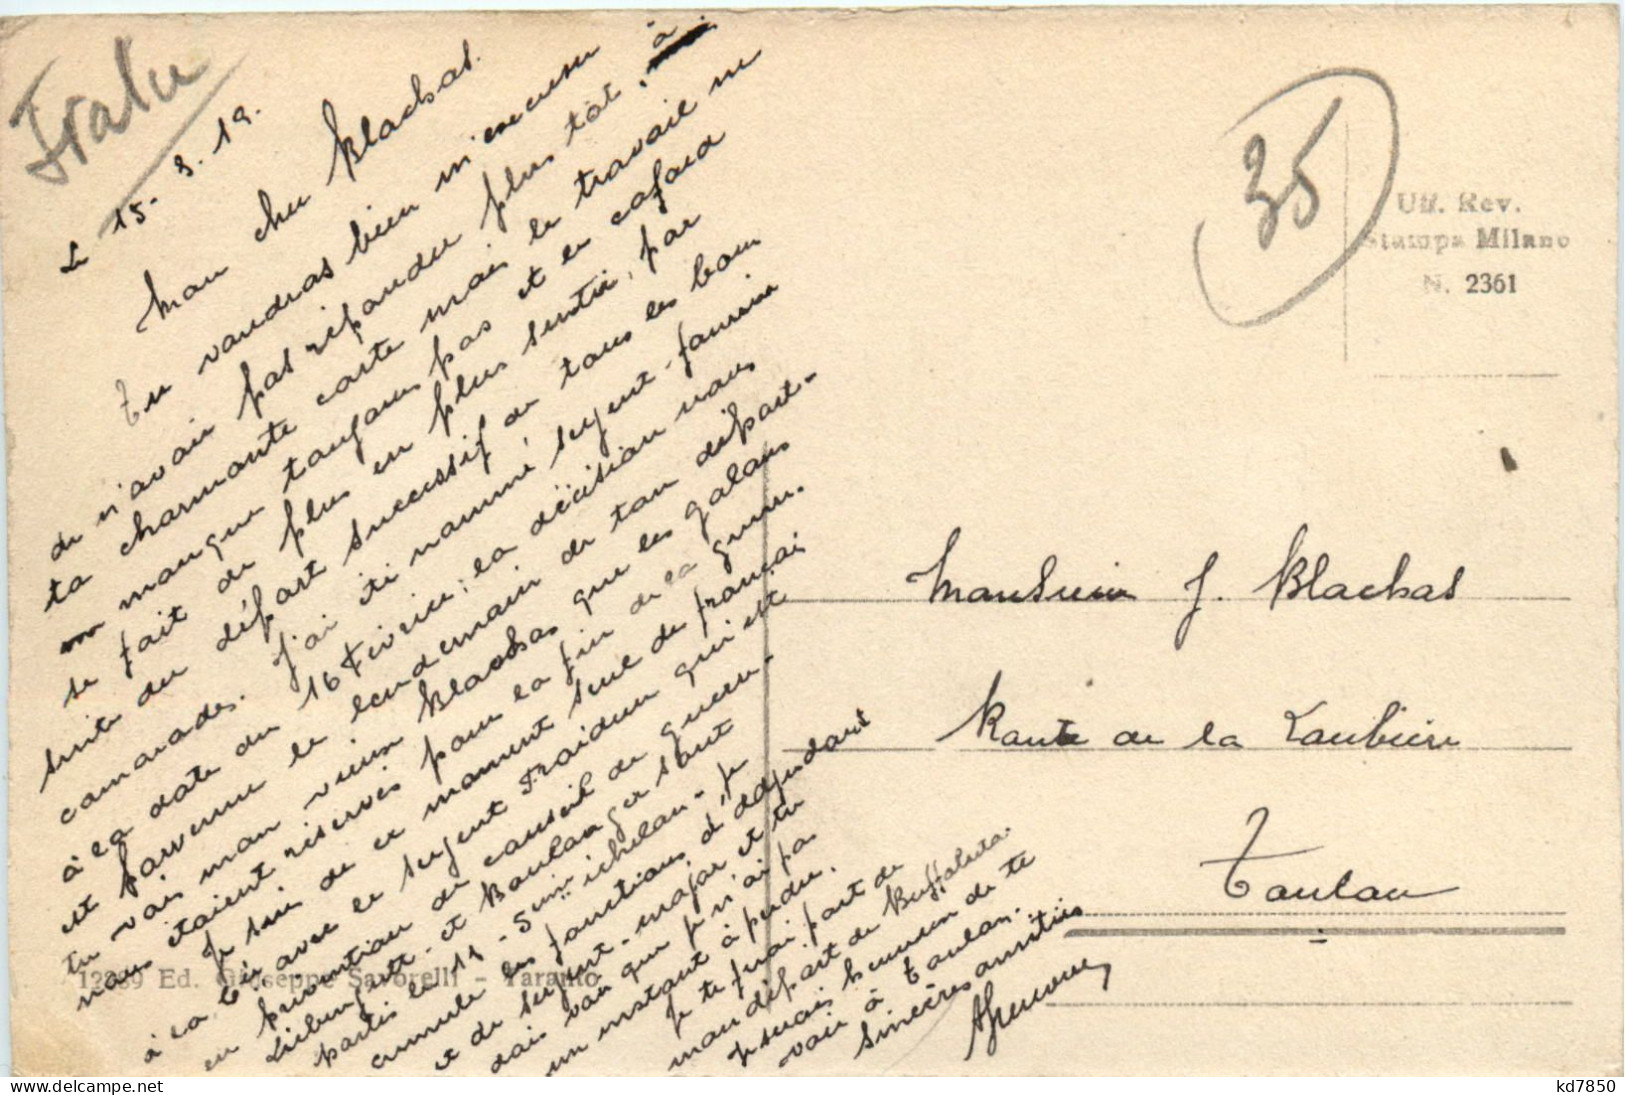 Italie
Le 15. 3. 19.
Mon cher Blachas.
Tu voudras bien m'excuser
de n'avoir pas répondu plus tôt, à
ta charmante carte mais le travail ne
manque toujours pas et le cafard
se fait de plus en plus sentir, par
suite du départ successif de tous les bons
camarades. J'ai été nommé sergent-fourrier
à la date du 16 Février; la décision nous
est parvenue le lendemain de ton départ.
tu vois mon vieux Blachas que les galons
nous étaient réservés pour la fin de la guerre.
Je suis de ce moment seul de français
à la Cie avec le sergent Froidun qui est
en prévention de conseil de guerre.
et Boulanger sont
partis le 11 - 5em échelon. Je
cumule les fonctions d'adjudant
et de sergent-major et tu
dois voir que je n'ai pas
un instant à perdre.
Je te ferai part de
mon départ de Buffaluta.
Je serais heureux de te
voir à Toulon.
Sincères amitiés
Uff. Rev.
Stampa Milano
N. 2361
35
Monsieur J. Blachas
Route de la Loubière
Toulon
12289 Ed. Giuseppe Savorelli - Taranto
kd7850